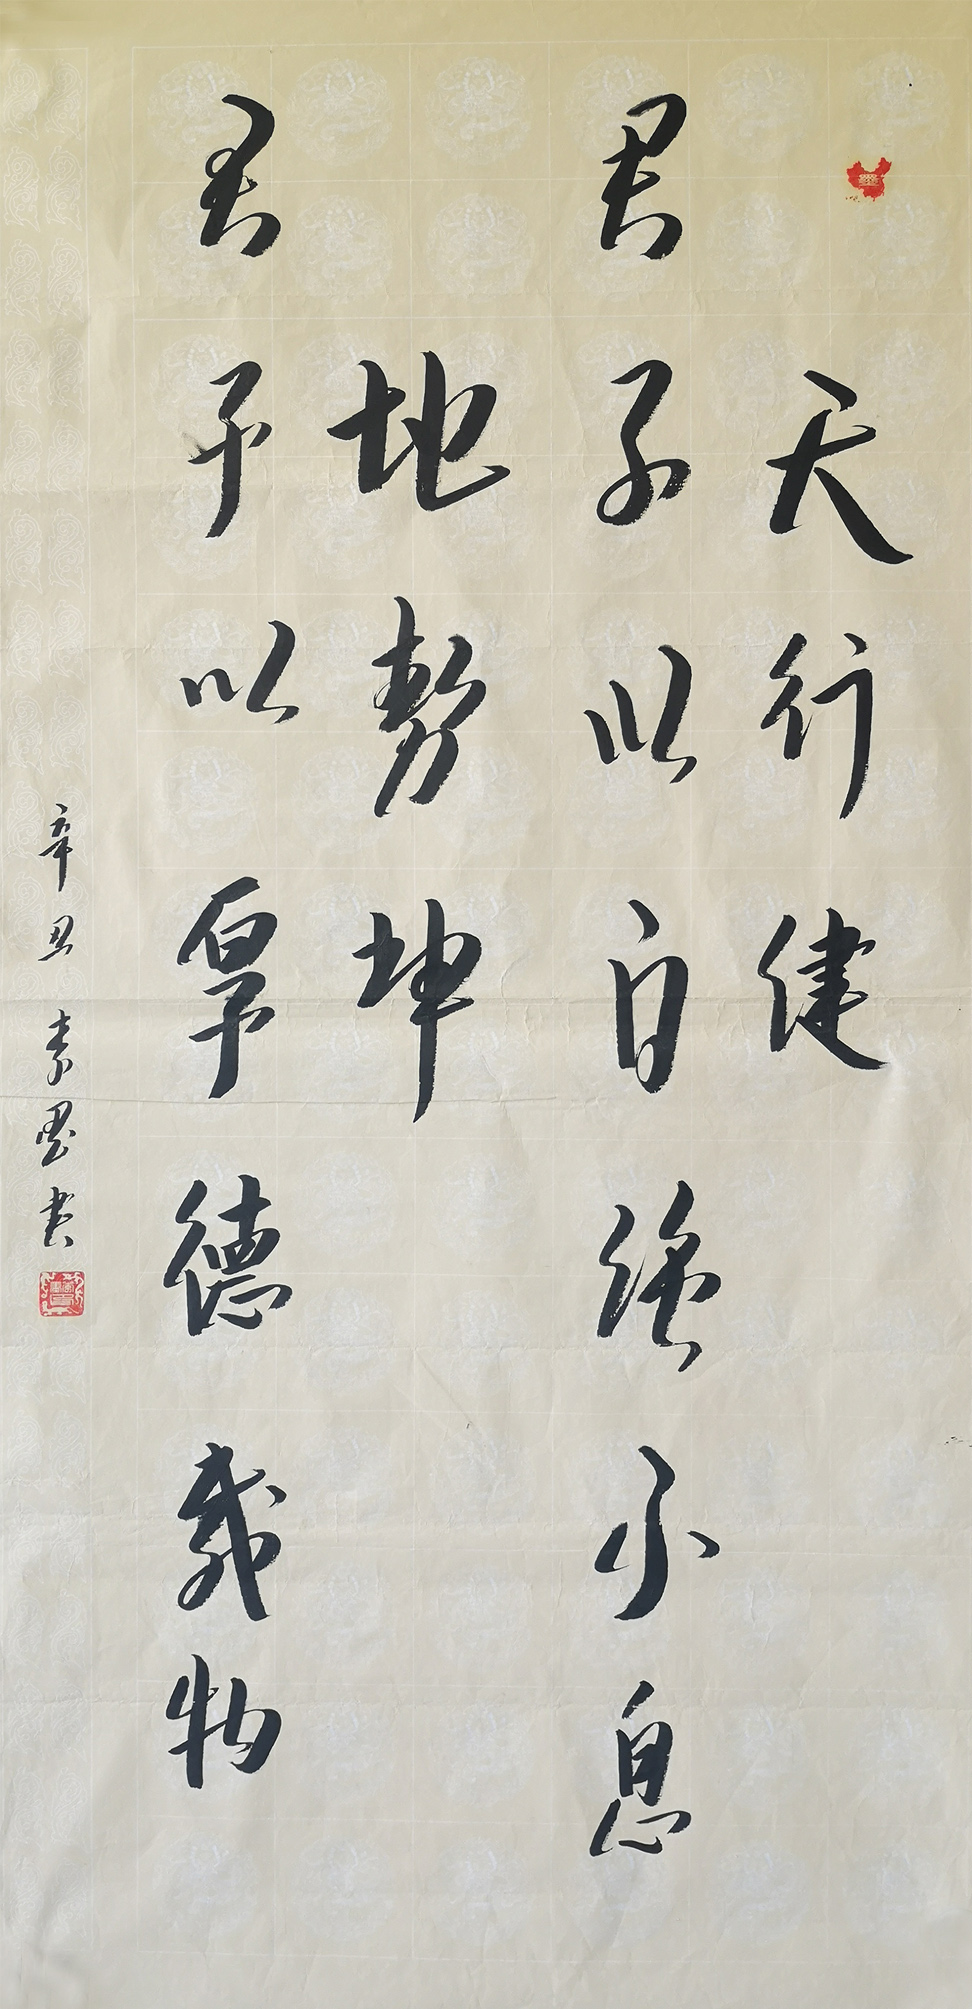 天行健
君子以自强不息
地势坤
君子以厚德载物
辛丑 素墨书